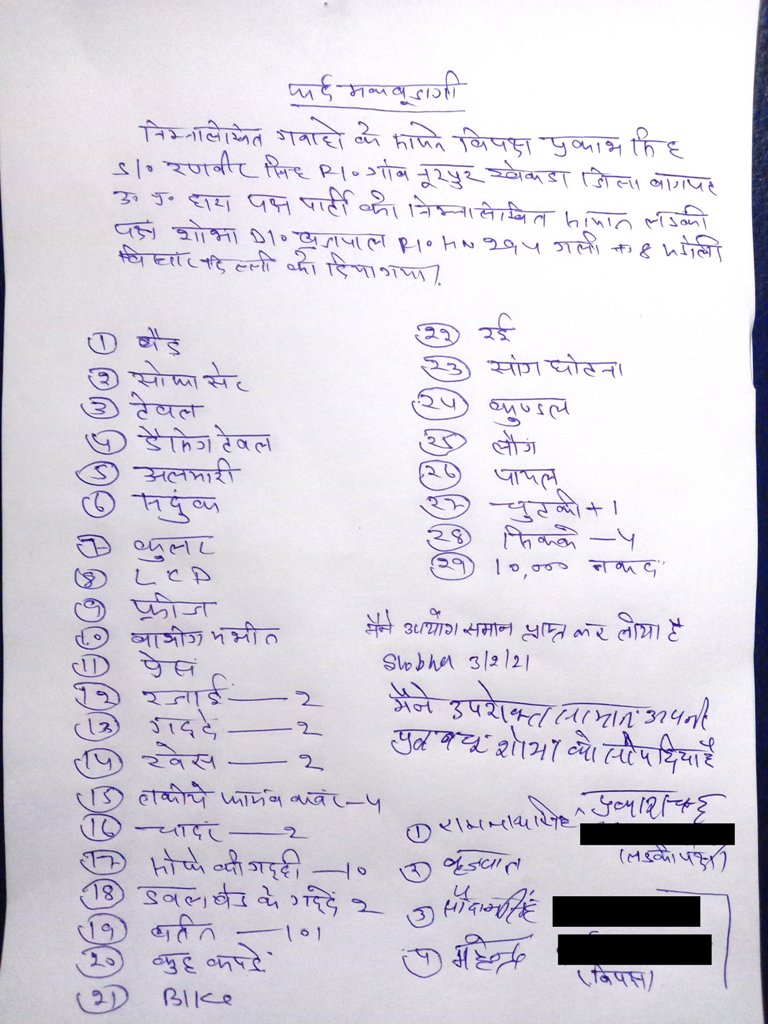 फर्द मकबूजगी
निम्नलिखित गवाहो के सामने विपक्ष प्रकाश सिंह
S/o रणवीर सिंह R/o गांव नूरपुर खेकडा जिला बागपत
उ. प्र. द्वारा पक्ष पार्टी को निम्नलिखित सामान लडकी
पक्ष शोभा D/o बृजपाल R/o HN 294 गली न. 8 मंडोली
दिल्ली को दिया गया।
① बैड
② सोफा सेट
③ टेबल
④ टेबल
⑤ अलमारी
⑥ संदुक
⑦ कुलर
⑧ LCD
⑨ फ्रीज
⑩ वाशींग मशीन
⑪ प्रेस
⑫ रजाई — 2
⑬ गददे — 2
⑭ खेस — 2
⑮ तकीये कवर — 4
⑯ चादर — 2
⑰ सोफे की गददी — 10
⑱ डबल बैड के गददे 2
⑲ बर्तन — 101
⑳ कुछ कपडे
㉑ BIKE
㉒ रई
㉓ सांग घोटना
㉔ कुण्डल
㉕ लौंग
㉖ पायल
㉗ चुटकी + 1
㉘ सिक्के — 4
㉙ 10,000 नकद
मैने उपयोग समान प्राप्त कर लीया है
Shobha 3/2/21
मैने उपरोक्त सामान अपनी
पुत्र वधू शोभा को सौंप दिया है
प्रकाश चन्द
① रामनाथ सिंह
(लडका पक्ष)
② बृजपाल
③
④ महेन्द्र
(विपक्ष)